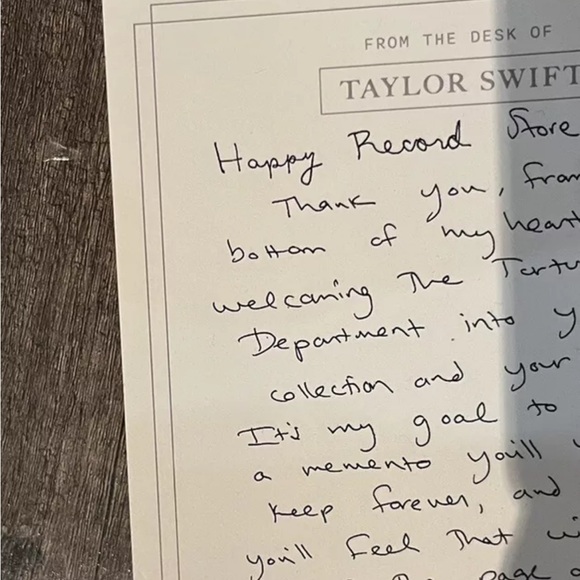 FROM THE DESK OF
TAYLOR SWIFT
Happy Record Store
Thank you, from
bottom of my heart
welcoming The Tortu
Department into y
collection and your
It's my goal to
a memento you'll
keep forever, and
you'll feel that wi
page